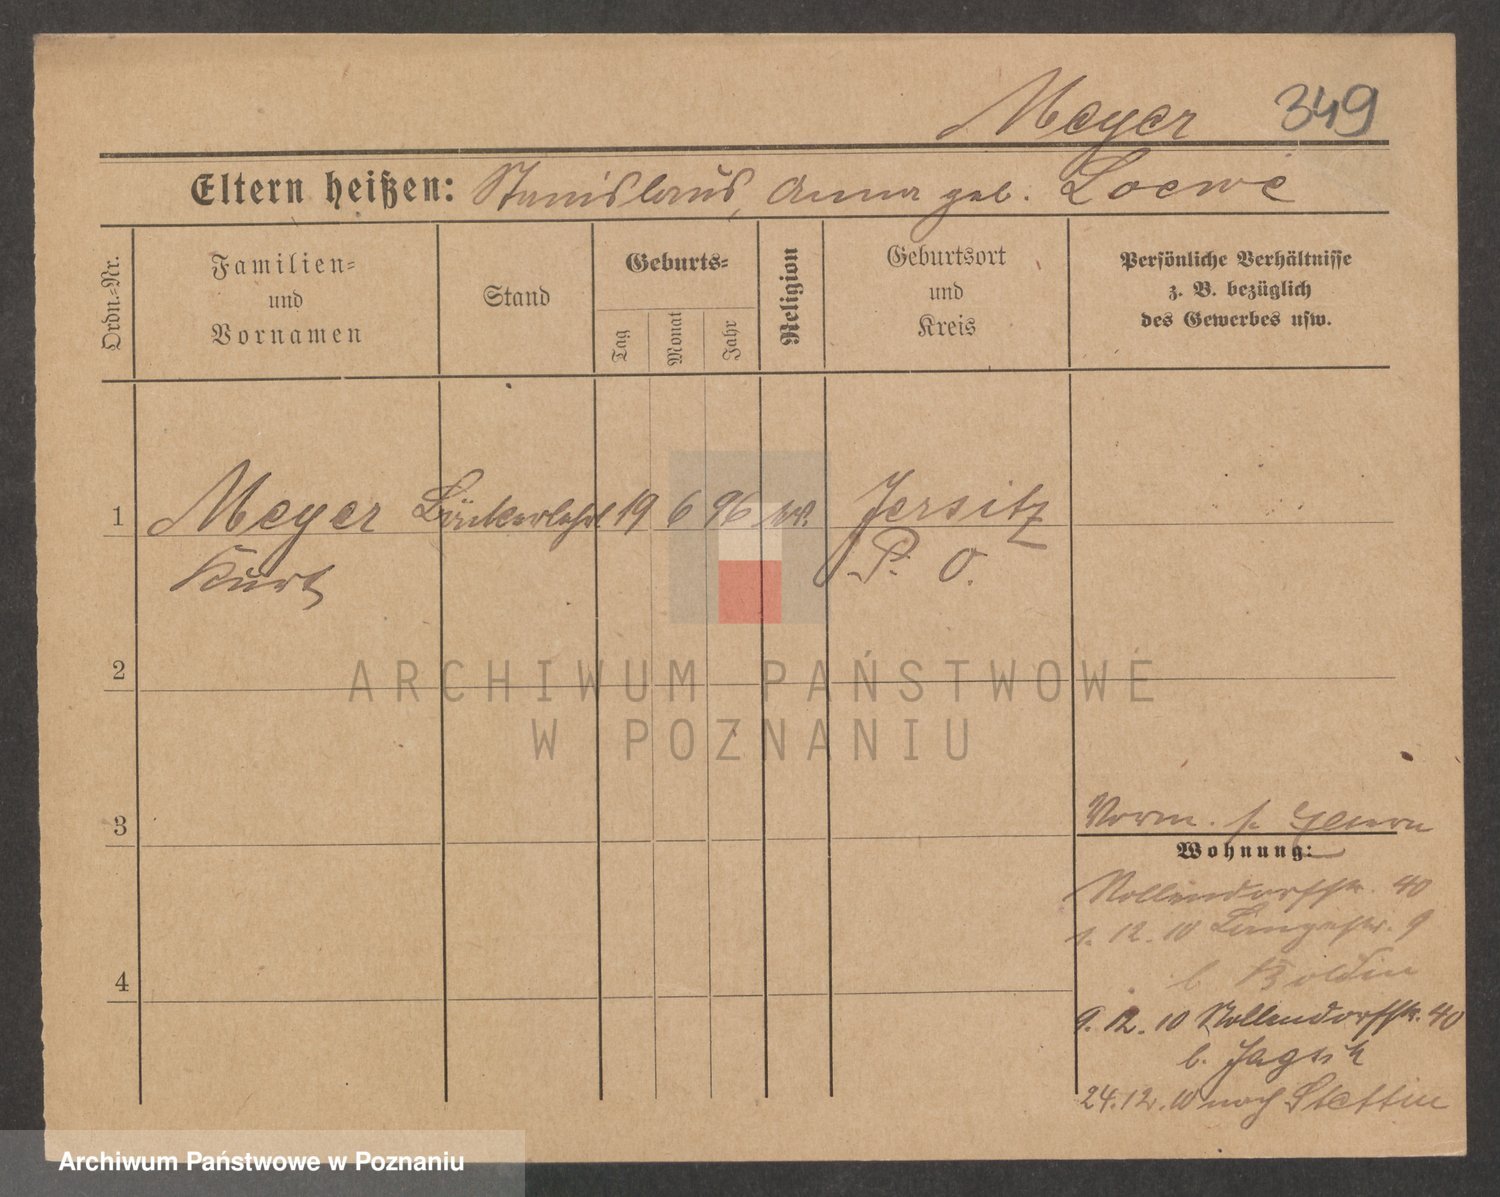 Meyer 349
Eltern heißen: Stanislaus, Anna geb. Loewe
Ordn.=Nr.
Familien=
und
Vornamen
Stand
Geburts=
Tag
Monat
Jahr
Religion
Geburtsort
und
Kreis
Persönliche Verhältnisse
z. B. bezüglich
des Gewerbes usw.
1 Meyer Bäckerlehrl 19 6 96 Jersitz
Kurt P. O.
2
3
4
Vorm. s. Eltern
Wohnung:
Nollendorfstr. 40
1. 12. 10 Langestr. 9
b. Boldin
9. 12. 10 Nollendorfstr. 40
b. Jagsch
24. 12. 10 nach Stettin
ARCHIWUM PAŃSTWOWE
W POZNANIU
Archiwum Państwowe w Poznaniu